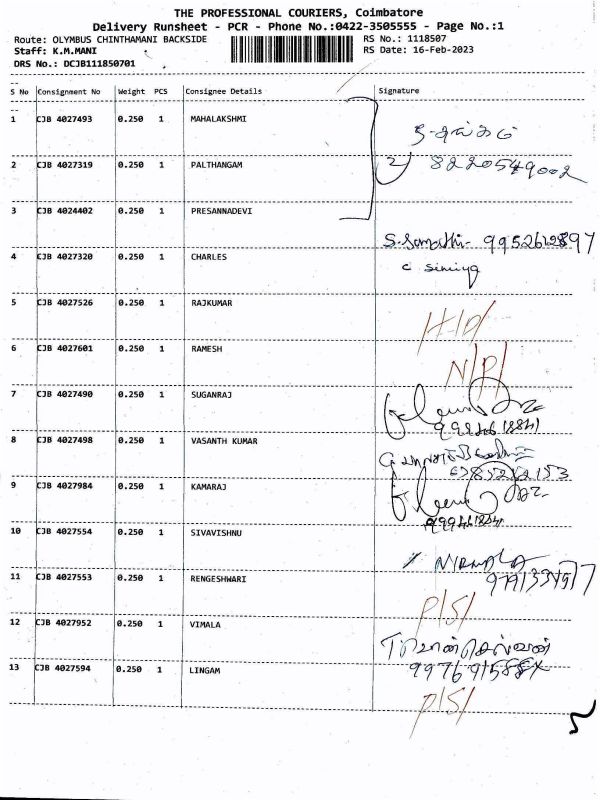 THE PROFESSIONAL COURIERS, Coimbatore
Delivery Runsheet - PCR - Phone No.:0422-3505555 - Page No.:1
Route: OLYMBUS CHINTHAMANI BACKSIDE RS No.: 1118507
Staff: K.M.MANI RS Date: 16-Feb-2023
DRS No.: DCJB111850701
S No Consignment No Weight PCS Consignee Details Signature
1 CJB 4027493 0.250 1 MAHALAKSHMI
2 CJB 4027319 0.250 1 PALTHANGAM 2)
3 CJB 4024402 0.250 1 PRESANNADEVI
4 CJB 4027320 0.250 1 CHARLES
5 CJB 4027526 0.250 1 RAJKUMAR
6 CJB 4027601 0.250 1 RAMESH N/P/
7 CJB 4027490 0.250 1 SUGANRAJ
8 CJB 4027498 0.250 1 VASANTH KUMAR
9 CJB 4027984 0.250 1 KAMARAJ
10 CJB 4027554 0.250 1 SIVAVISHNU
NIRMALA
11 CJB 4027553 0.250 1 RENGESHWARI
P/S/
12 CJB 4027952 0.250 1 VIMALA
13 CJB 4027594 0.250 1 LINGAM
P/S/